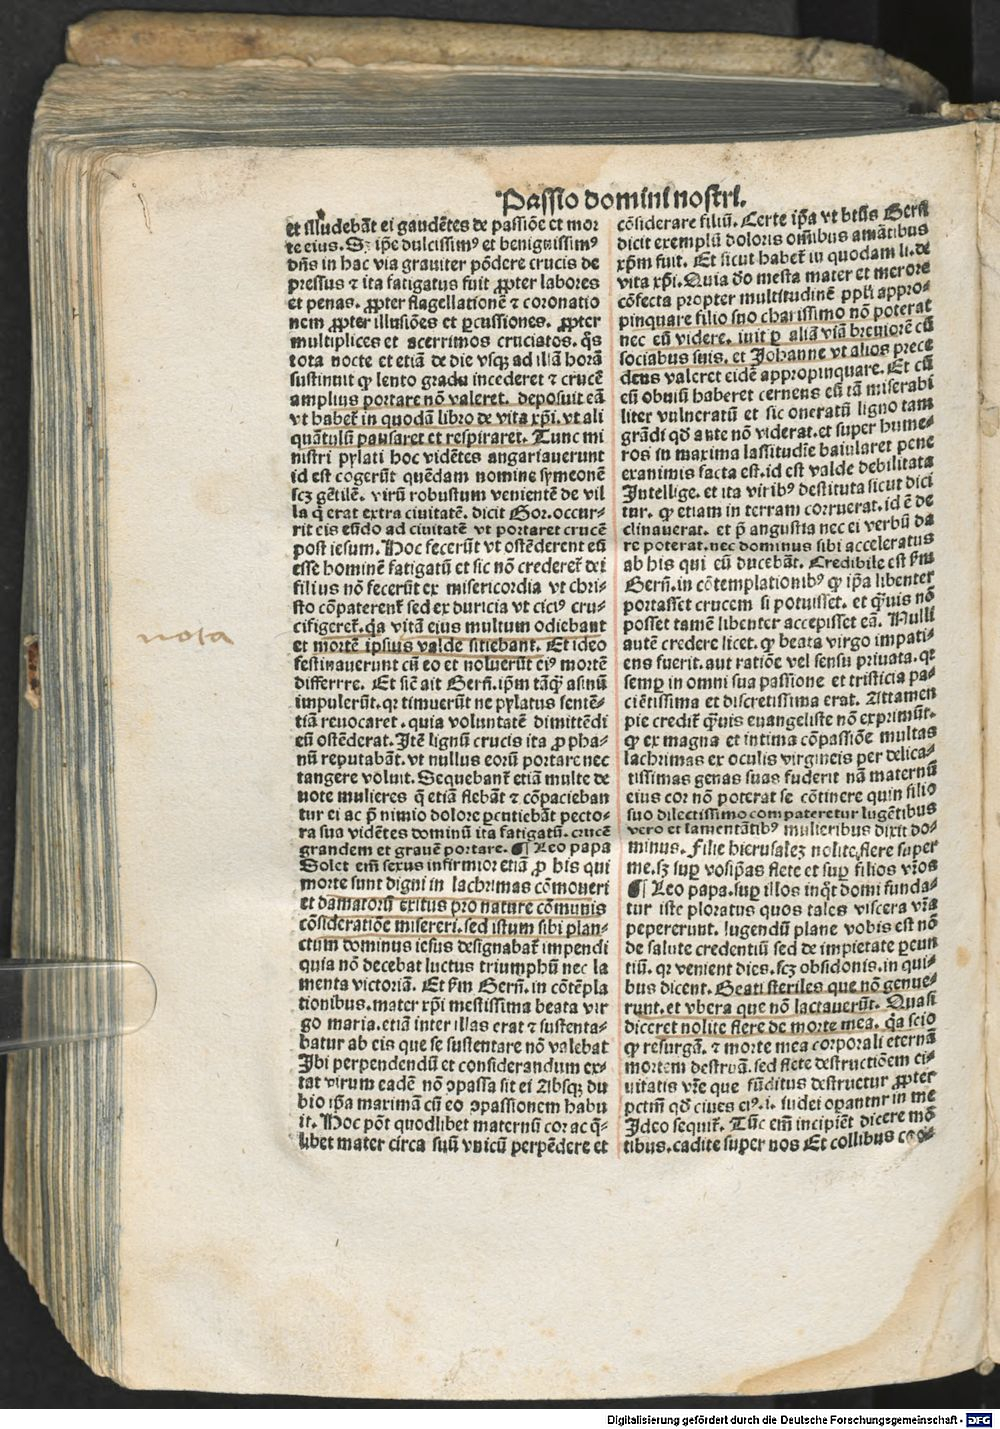 Passio domini nostri.
et illudebāt ei gaudētes de passiōe et mor
te eius. Sꝫ ip̄e dulcissimꝰ et benignissimꝰ
dn̄s in hac via grauiter pōdere crucis de
pressus ⁊ ita fatigatus fuit ꝓpter labores
et penas. ꝓpter flagellationē ⁊ coronatio
nem ꝓpter illusiōes et ꝑcussiones. ꝓpter
multiplices et acerrimos cruciatos. q̄s
tota nocte et etiā de die vsqꝫ ad illā horā
sustinuit ꝙ lento gradu incederet ⁊ crucē
amplius portare nō valeret. deposuit eā
vt habet̄ in quodā libro de vita xp̄i. vt ali
quātulū pausaret et respiraret. Tunc mi
nistri pylati hoc vidētes angariauerunt
id est cogerūt quēdam nomine symeonē
scꝫ gētilē. virū robustum venientē de vil
la q̄ erat extra ciuitatē. dicit Gor. occur-
rit eis eūdo ad ciuitatē vt portaret crucē
post iesum. Hoc fecerūt vt ostēderent eū
esse hominē fatigatū et sic nō crederet̄ dei
filius nō fecerūt ex misericordia vt chri-
sto cōpaterent̄ sed ex duricia vt ciciꝰ cru-
cifigeret̄. q̄a vitā eius multum odiebant
et mortē ipsius valde sitiebant. Et ideo
festinauerunt cū eo et noluerūt eiꝰ mortē
differrre. Et sic̄ ait Bern̄. ip̄m tāq̄ᷓ asinū
impulerūt. qꝛ timuerūt ne pylatus sentē-
tiā reuocaret. quia voluntatē dimittēdi
eū ostēderat. Itē lignū crucis ita ꝓ pha-
nū reputabāt. vt nullus eorū portare nec
tangere voluit. Sequebant̄ etiā multe de
uote mulieres q̄ etiā flebāt ⁊ cōpacieban
tur ei ac p̄ nimio dolore ꝑcutiebant pecto-
ra sua vidētes dominū ita fatigatū. crucē
grandem et grauē portare. ¶ Leo papa
Solet em̄ sexus infirmior etiā ꝓ his qui
morte sunt digni in lachrimas cōmoueri
et damatorū exitus pro nature cōmunis
cōsideratiōe misereri. sed istum sibi plan-
ctum dominus iesus designabat̄ impendi
quia nō decebat luctus triumphū nec la
menta victoriā. Et ẜm Bern̄. in cōtēpla
tionibus. mater xp̄i mestissima beata vir
go maria. etiā inter illas erat ⁊ sustenta-
batur ab eis que se sustentare nō valebat
Ibi perpendendū et considerandum ex-
tat virum eadē nō ꝯpassa sit ei Absqꝫ du
bio ip̄a maximā cū eo ꝯpassionem habu
it. Hoc pōt quodlibet maternū cor ac q̄-
libet mater circa suū vnicū perpēdere et
cōsiderare filiū. Certe ip̄a vt btūs Bern̄
dicit exemplū doloris om̄ibus amātibus
xp̄m fuit. Et sicut habet̄ in quodam li. de
vita xp̄i. Quia dō mesta mater et merore
cōfecta propter multitudinē ppl̄i appro-
pinquare filio suo charissimo nō poterat
nec eū videre. iuit ꝑ aliā viā breuiorē cū
sociabus suis. et Johanne vt alios prece
dens valeret eidē appropinquare. Et cū
eū obuiū haberet cernens eū tā miserabi
liter vulneratū et sic oneratū ligno tam
grādi qd̄ ante nō viderat. et super hume-
ros in maxima lassitudīe baiularet pene
exanimis facta est. id est valde debilitata
Intellige. et ita viribꝰ destituta sicut dici
tur. ꝙ etiam in terram corruerat. id ē de
clinauerat. et p̄ angustia nec ei verbū da
re poterat. nec dominus sibi acceleratus
ab his qui eū ducebāt. Credibile est ẜm
Bern̄. in cōtemplationibꝰ ꝙ ip̄a libenter
portasset crucem si potuisset. et q̄ᷓuis nō
posset tamē libenter accepisset eā. Nulli
autē credere licet. ꝙ beata virgo impati-
ens fuerit. aut ratiōe vel sensu priuata. qꝛ
semꝑ in omni sua passione et tristicia pa-
ciētissima et discretissima erat. Attamen
pie credit̄ q̄ᷓuis euangeliste nō exprimūt.
ꝙ ex magna et intima cōpassiōe multas
lachrimas ex oculis virgineis per delica-
tissimas genas suas fuderit nā maternū
eius cor nō poterat se cōtinere quin filio
suo dilectissimo compateretur lugētibus
vero et lamentātibꝰ mulieribus dixit do-
minus. Filie hierusalez nolite flere super
me. sꝫ suꝑ vosip̄as flete et suꝑ filios vr̄os
¶ Leo papa. suꝑ illos inq̄t domi funda-
tur iste ploratus quos tales viscera vr̄a
pepererunt. lugendū plane vobis est nō
de salute credentiū sed de impietate ꝑeun
tiū. qꝛ venient dies. scꝫ obsidonis. in qui-
bus dicent. Beati steriles que nō genue-
runt. et vbera que nō lactauerūt. Quasi
diceret nolite flere de morte mea. q̄a scio
ꝙ resurgā. ⁊ morte mea corporali eternā
mortem destruā. sed flete destructiōem ci-
uitatis vr̄e que fūditus destructur ꝓpter
pctm̄ qd̄ ciues eiꝰ. i. iudei oꝑantnr in me
Ideo sequit̄. Tūc em̄ incipiēt dicere mō
tibus. cadite super nos Et collibus
nota
Digitalisierung gefördert durch die Deutsche Forschungsgemeinschaft - DFG